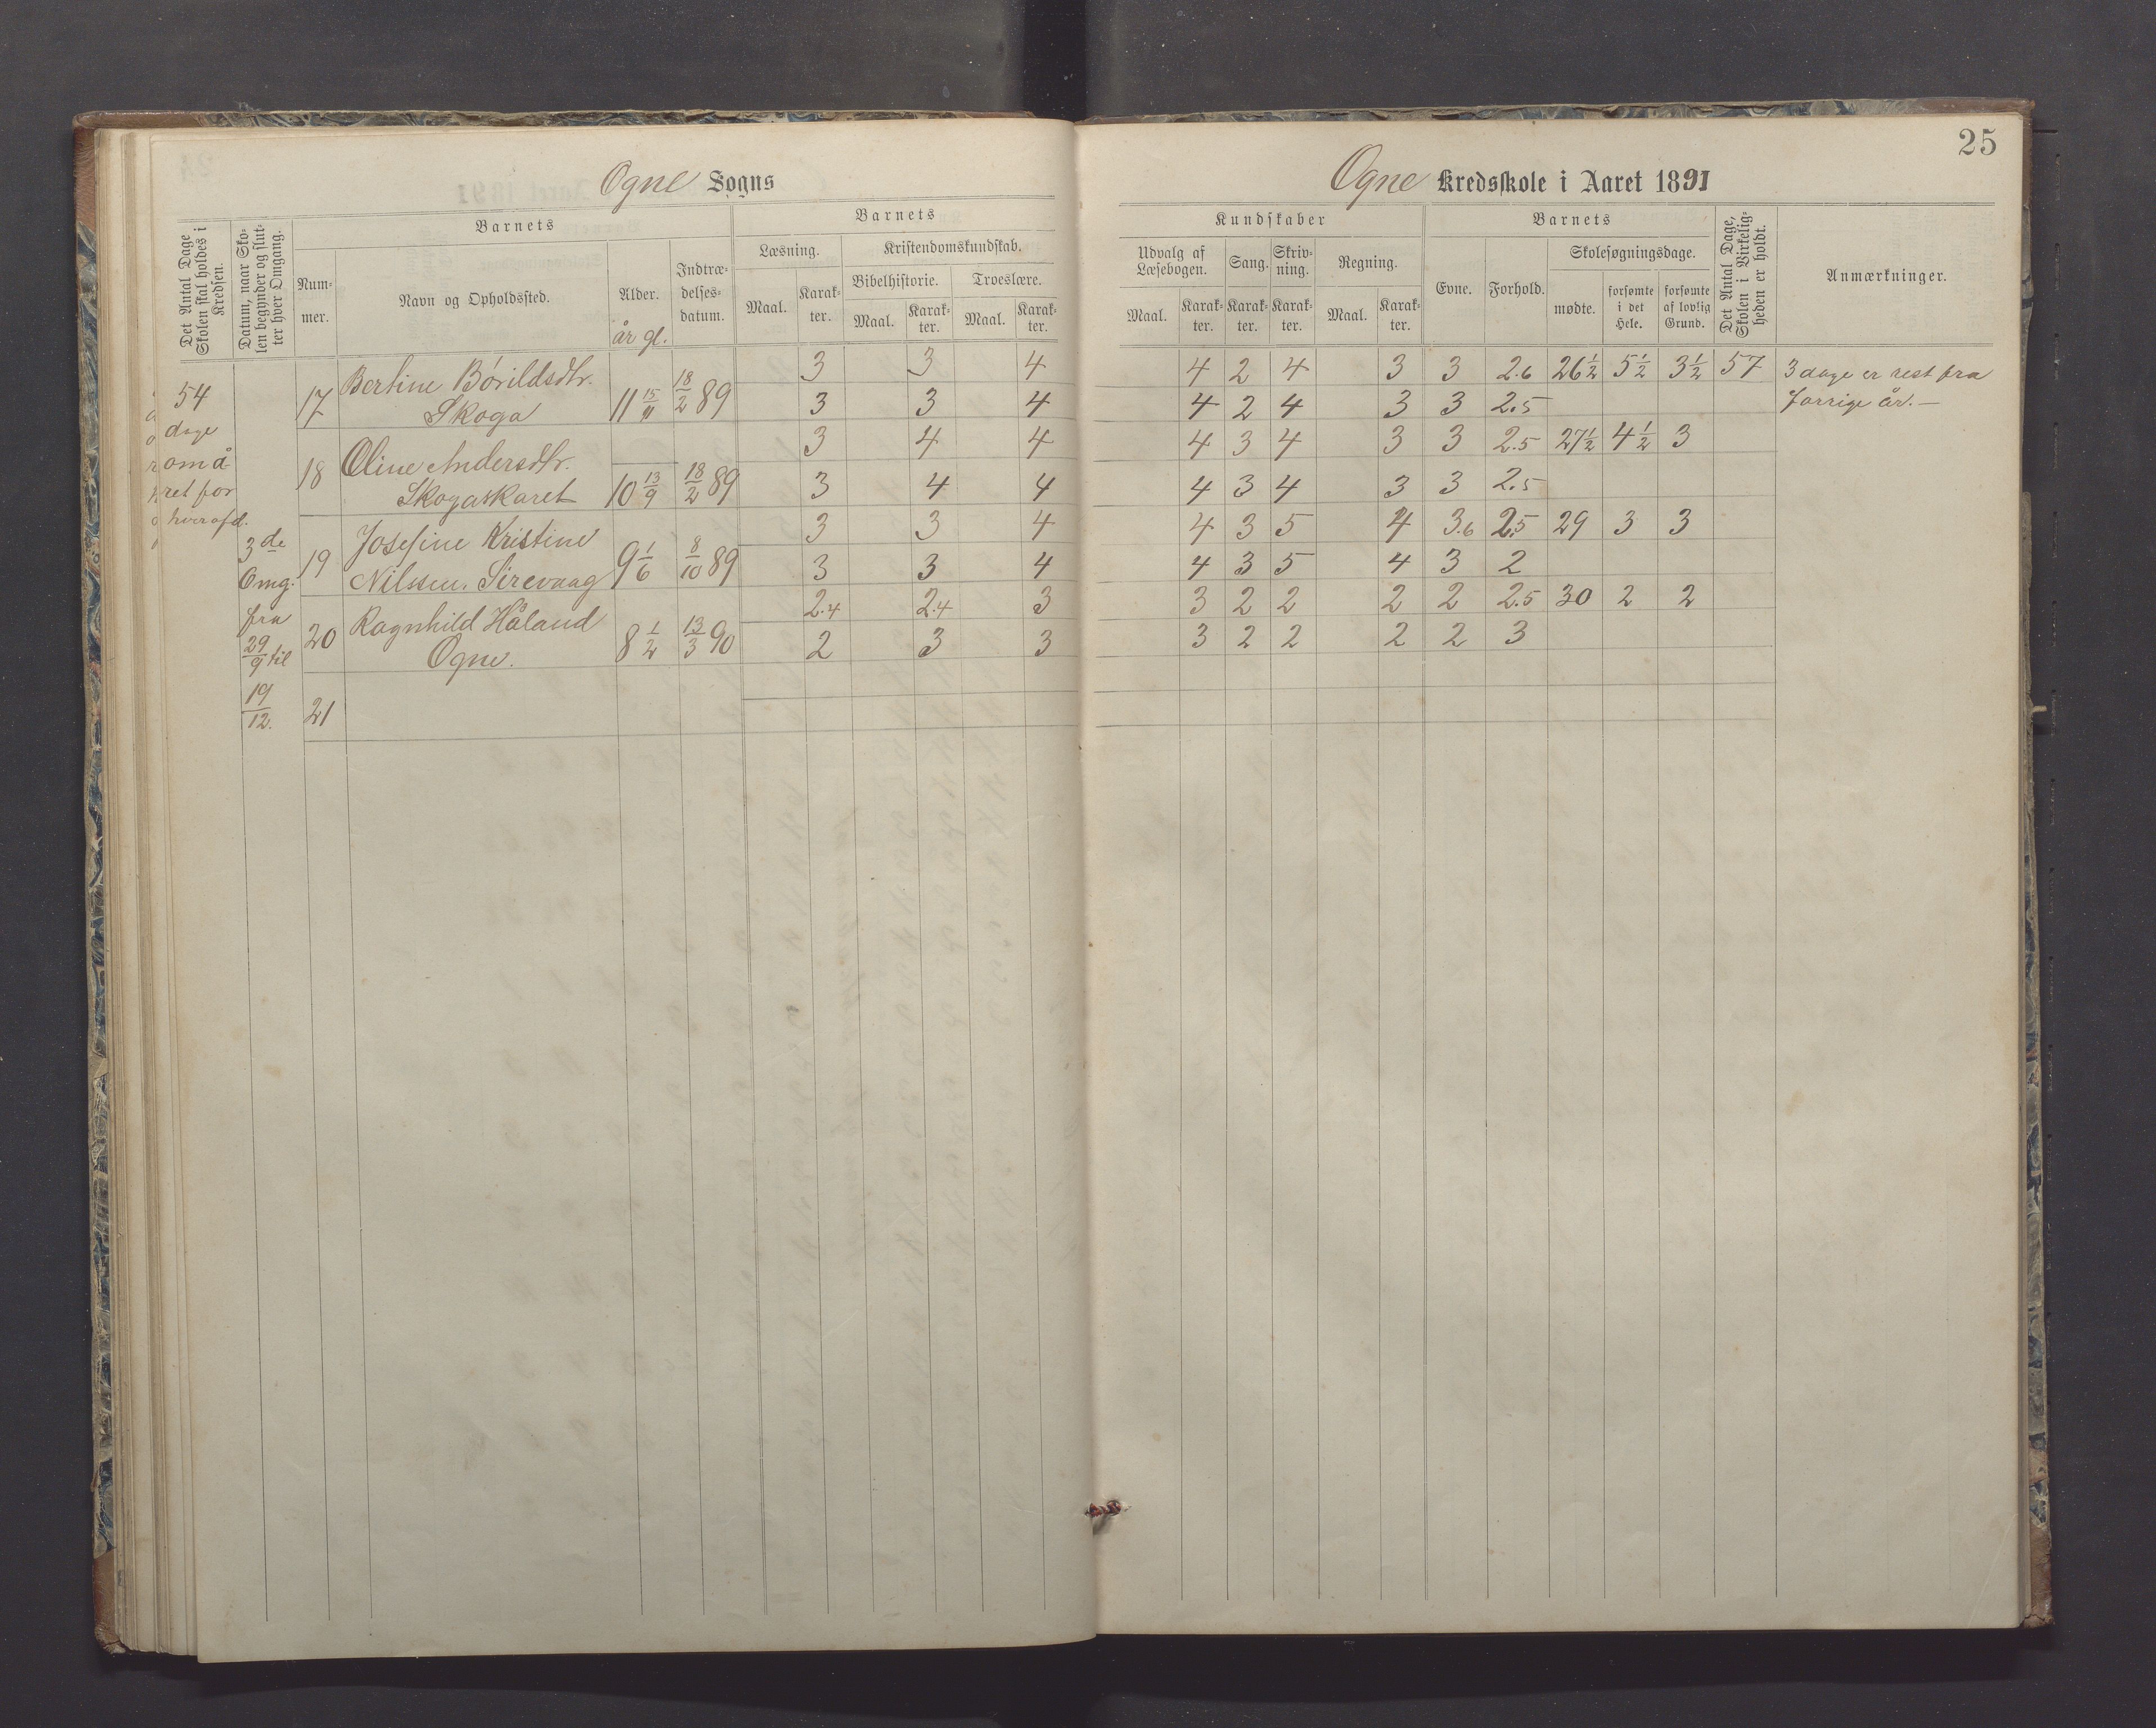 Ogne Sogns
Det Antal Dage Skolen skal holdes i Kredsen.
Datum, naar Skolen begynder og slutter hver Omgang.
Barnets
Nummer.
Navn og Opholdssted.
Alder.
år gl.
Indtrædelsesdatum.
Barnets
Læsning.
Maal.
Karakter.
Kristendomskundskab.
Bibelhistorie.
Troeslære.
Maal. Karakter. Maal. Karakter.
54
dage
om å-
ret for
hver afd.
3de
Omg.
fra
29/9 til
19/12.
17 Bertine Bórildsdtr. 3 3 4
Skoga 11 15/11 18/2 89 3 3 4
18 Oline Andersdtr. 3 4 4
Skogaskaret 10 13/9 18/2 89 3 4 4
19 Josefine Kristine 3 3 4
Nilssen. Sirevaag 9 1/6 8/10 89 3 3 4
20 Ragnhild Håland 2.4 2.4 3
Ogne. 8 1/2 13/3 90 2 3 3
21
25
Ogne Kredsskole i Aaret 1891
Kundskaber
Udvalg af Læsebogen.
Sang.
Skrivning.
Regning.
Maal. Karakter. Karakter. Karakter. Maal. Karakter.
Barnets
Evne.
Forhold.
Skolesøgningsdage.
mødte.
forsømte i det Hele.
forsømte af lovlig Grund.
Det Antal Dage, Skolen i Virkeligheden er holdt.
Anmærkninger.
4 2 4 3 3 2.6 26½ 5½ 3½ 57 3 dage er rest fra
4 2 4 3 3 2.5 forrige år.—
4 3 4 3 3 2.5 27½ 4½ 3
4 3 4 3 3 2.5
4 3 5 4 3.6 2.5 29 3 3
4 3 5 4 3 2
3 2 2 2 2 2.5 30 2 2
3 2 2 2 2 3